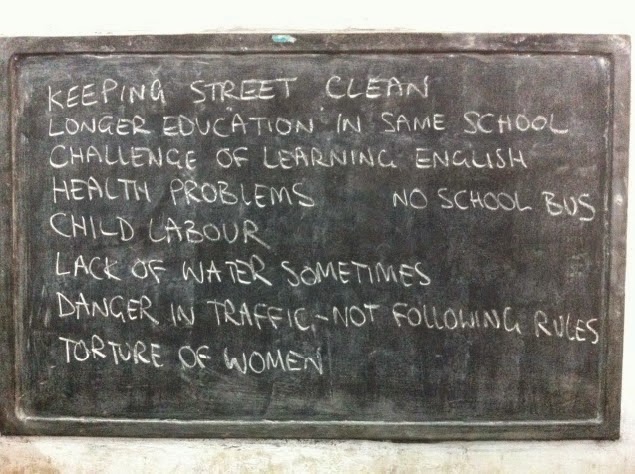 KEEPING STREET CLEAN
LONGER EDUCATION IN SAME SCHOOL
CHALLENGE OF LEARNING ENGLISH
HEALTH PROBLEMS NO SCHOOL BUS
CHILD LABOUR
LACK OF WATER SOMETIMES
DANGER IN TRAFFIC - NOT FOLLOWING RULES
TORTURE OF WOMEN